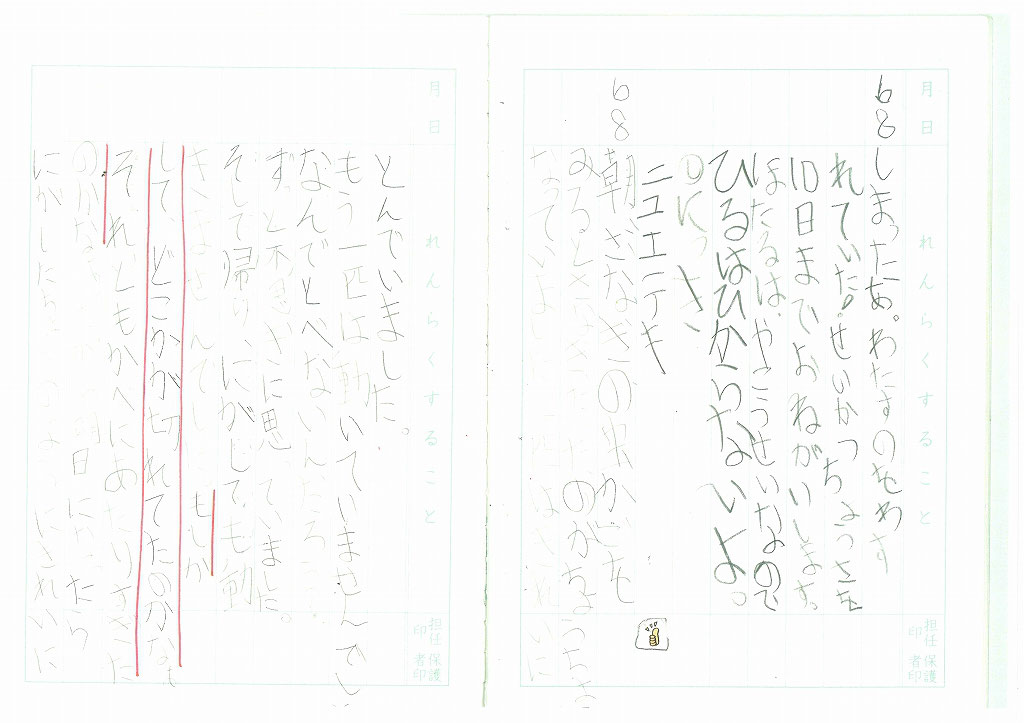 月 日 れんらくすること 担任印 保護者印
6 8 しまったあ。わたすのをわす
れていた!。せいかつちょうさを
10日までおねがいします。
ほたるは、やこうせいなので
ひるはひからないよっ
のにっき
6 8 朝、さなぎの
みるとさなぎ のがちょうちょ
なっていました はきれいに
月 日 れんらくすること 担任印 保護者印
とんでいました。
もう一匹は動いていませんでし
なんでとべないんだろう
ずっと不思ぎに思っていました。
そして帰り、にがしても動
きませんでした ももか
して、どこかが切れてたのかな。
それどもかべにあたりすぎた
のかな 明日になったら
にがしたちょ うにきれいに